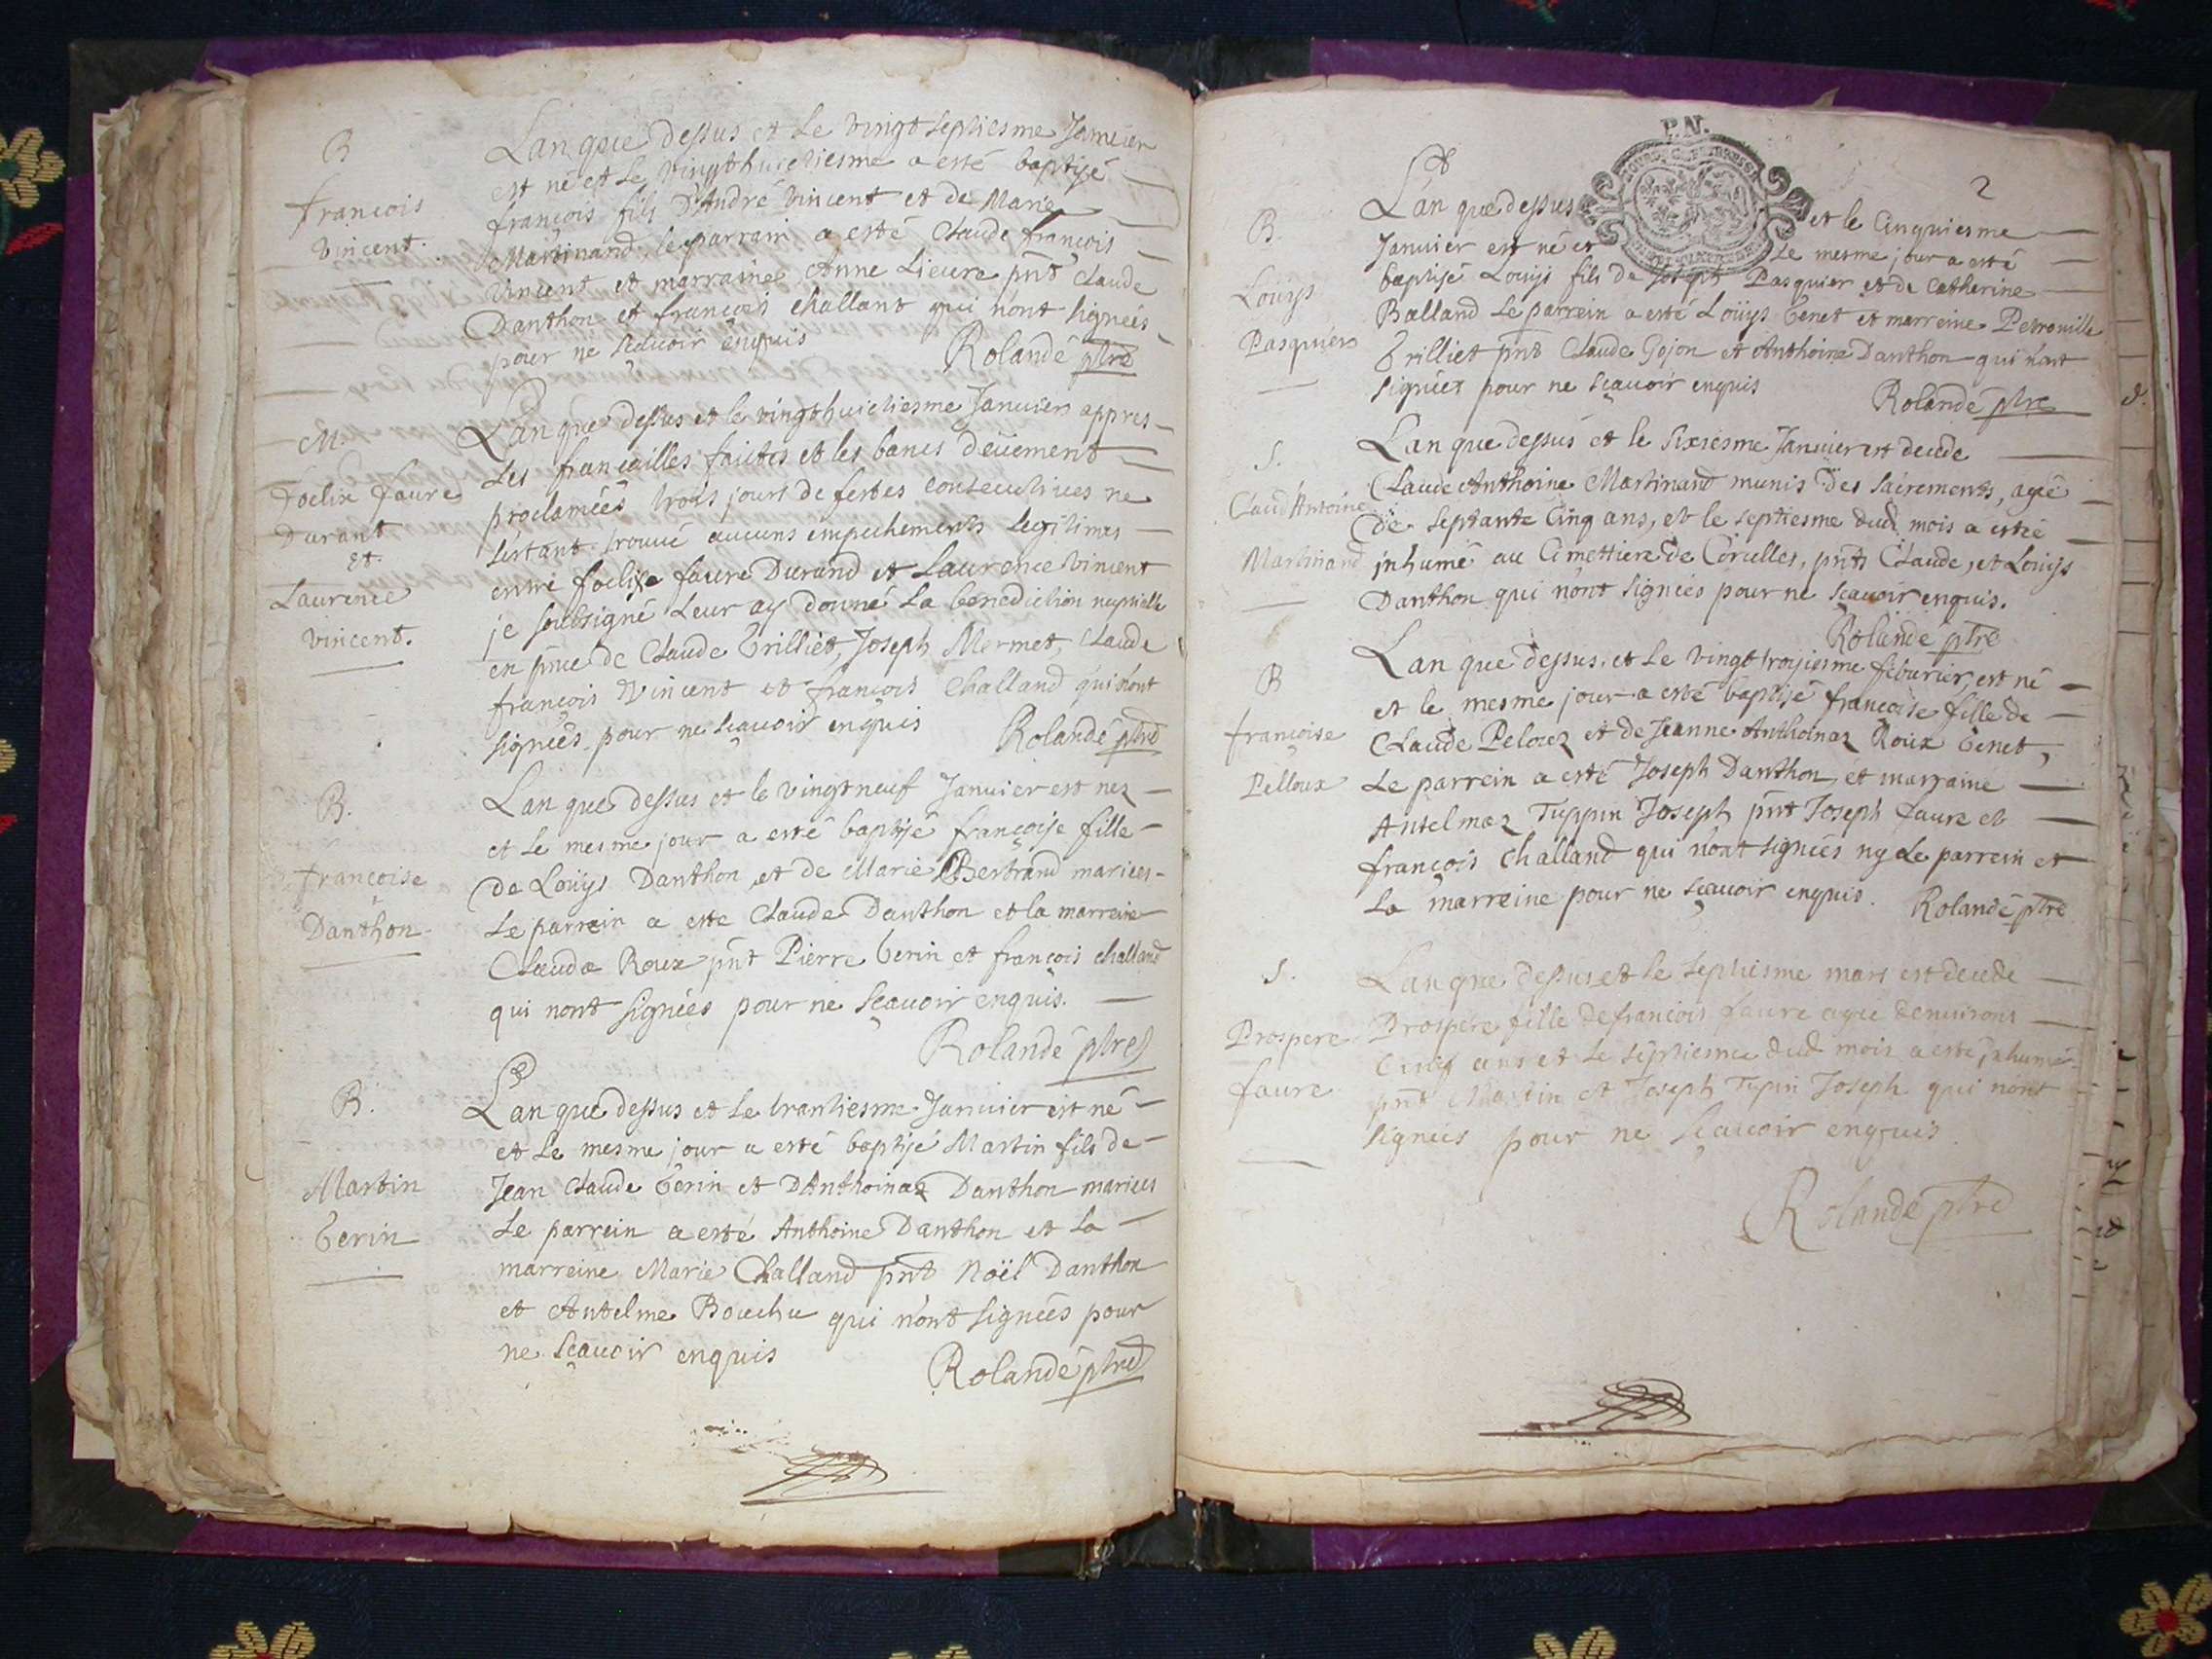 B
françois
Vincent.
Lan que dessus et le vingt septiesme Januier
est né et le vingthuictiesme a esté baptisé
françois fils D'André Vincent et de Marie
Martinand, le parrain a esté Claude françois
Vincent et marraine Anne Lieure pnt Claude
Danthon et françois challant qui n'ont signeés
pour ne scauoir enquis
Rolande ptre
M.
foelix faure
Durant
et.
Laurence
Vincent.
Lan que dessus et le vingthuictiesme Januier appres
Les fiancailles faictes et les bancs deüement
proclameés trois jours de festes consecutiues ne
s'estant trouué aucuns empechements legitimes
entre foelix faure Durand et Laurence Vincent
je soubsigné Leur ay donné La benediction nuptialle
en pnce de Claude Trilliet, Joseph Mermet, Claude
françois Vincent et françois Challand qui n'ont
signeés pour ne scauoir enquis
Rolande ptre
B.
françoise
Danthon.
Lan que dessus et le vingtneuf Januier est nez
et Le mesme jour a esté baptisé françoise fille
de Loüys Danthon et de Marie Bertrand marieés
Le parrein a esté Claude Danthon et la marreine
Clauda Roux pnt Pierre Terin et françois challand
qui nont signeés pour ne scauoir enquis.
Rolande ptre
B.
Martin
Terin
Lan que dessus et Le trantiesme Januier est né
et Le mesme jour a esté baptisé Martin fils de
Jean Claude Terin et D'Anthoinaz Danthon marieés
Le parrein a esté Anthoine Danthon et La
marreine Marie Challand pnt Noël Danthon
et Antelme Bouchu qui n'ont signeés pour
ne scauoir enquis
Rolande ptre
P.N.
2
B.
Loüys
Pasquier
Lan que dessus et le Cinquiesme
Januier est né et Le mesme jour a esté
baptisé Louys fils de Joseph Pasquier et de Catherine
Balland Le parrein a esté Loüys Tenet et marreine Petronille
Trilliet pnt Claude Gojon et Anthoine Danthon qui n'ont
signeés pour ne scauoir enquis
Rolande ptre
S.
Claud Antoine
Martinand
Lan que dessus et le Sixiesme Januier est decedé
Claude Anthoine Martinand munis des sacrements, agé
de septante Cinq ans, et le septiesme dud. mois a esté
inhumé au Cimettiere de Corcelles, pnts Claude, et Louys
Danthon qui n'ont signeés pour ne scauoir enquis.
Rolande ptre
B
françoise
Pelloux
Lan que dessus et Le vingt troisiesme feburier, est né
et le mesme jour a esté baptisé françoise fille de
Claude Peloux et de Jeanne Anthoinaz Roux Tenet,
Le parrein a esté Joseph Danthon, et marraine
Antelmaz Tuppin Joseph pnt Joseph faure et
françois Challand qui n'ont signeés ny Le parrein et
La marreine pour ne scauoir enquis.
Rolande ptre
S.
Prospere
faure
Lan que dessus et Le septiesme mars est decedé
Prospere fille de françois faure ageé denuirons
Cinq ans et Le septiesme dud mois a esté inhumé
pnt Martin et Joseph Tupin Joseph qui nont
signeés pour ne scauoir enquis.
Rolande ptre